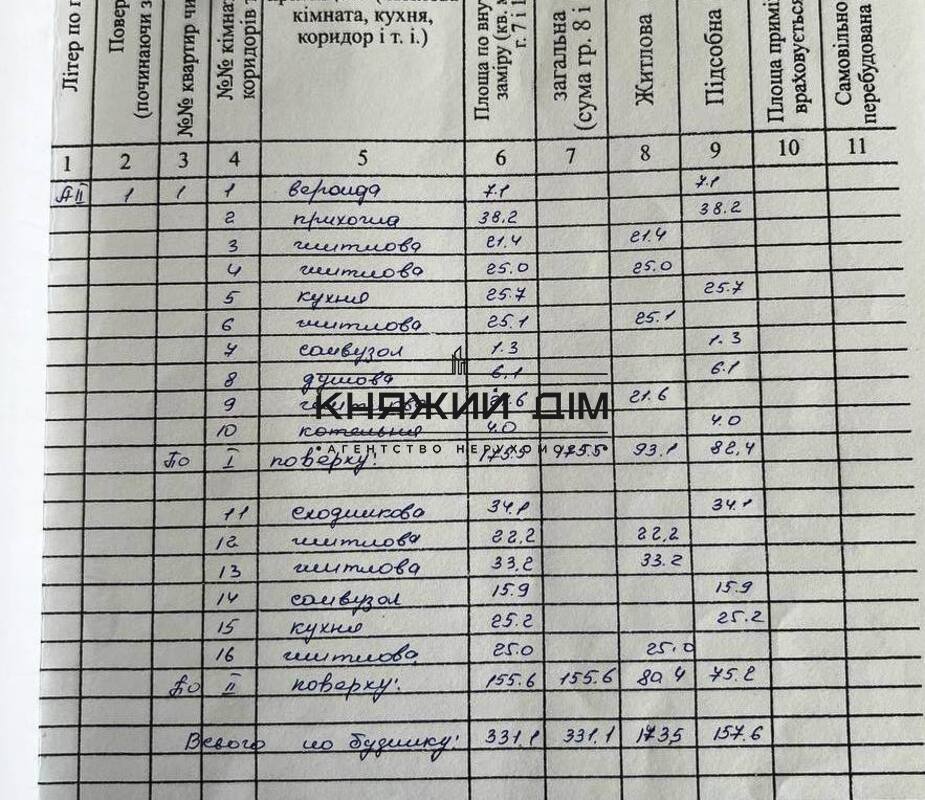 Літер по п
Повер
(починаючи з
№№ квартир чи
№№ кімнат
коридорів т
кімната, кухня,
коридор і т. і.)
Площа по вну
заміру (кв. м
г. 7 і 1
загальна
(сума гр. 8 і
Житлова
Підсобна
Площа примі
враховується
Самовільно
перебудована
1 2 3 4 5 6 7 8 9 10 11
АII 1 1 1 веранда 7.1 7.1
2 прихожа 38.2 38.2
3 житлова 21.4 21.4
4 житлова 25.0 25.0
5 кухня 25.7 25.7
6 житлова 25.1 25.1
7 санвузол 1.3 1.3
8 душова 6.1 6.1
9 21.6
КНЯЖИЙ ДІМ
10 котельня 4.0 4.0
АГЕНТСТВО НЕРУХОМОСТІ
По I поверху: 175.5 175.5 93.1 82.4
11 сходникова 34.1 34.1
12 житлова 22,2 22,2
13 житлова 33,2 33.2
14 санвузол 15.9 15.9
15 кухня 25.2 25.2
16 житлова 25.0 25.0
По II поверху: 155.6 155.6 80 4 75.2
Всього по будинку: 331.1 331.1 173,5 157.6